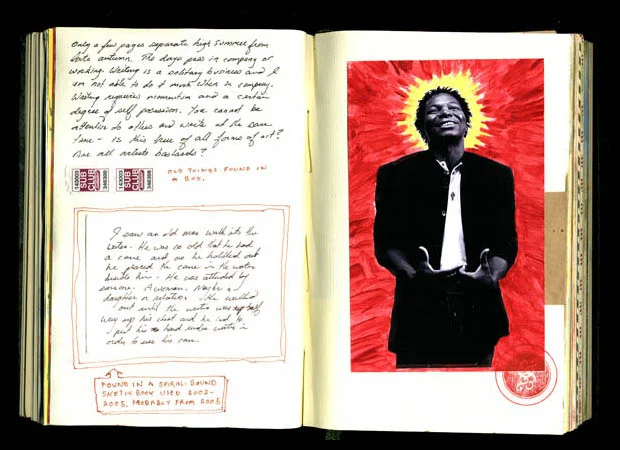 Only a few pages separate high summer from
late autumn. The days pass in company or
working. Writing is a solitary business and I
am not able to do it much when in company.
Writing requires momentum and a certain
degree of self possession. You cannot be
attentive to others and write at the same
time - is this true of all forms of art?
Are all artists bastards?
SUB
CLUB
SUB
CLUB
OLD THINGS FOUND IN
A BOX.
I saw an old man walk into the
water. He was so old that he had
a cane and as he hobbled out
he placed the cane in the water
beside him. He was attended by
someone. A woman. Maybe a
daughter or relative. He walked
out until the water was half
way up his chest and he had to
put his hand under water in
order to use his cane.
FOUND IN A SPIRAL-BOUND
SKETCHBOOK USED 2002-
2005, PROBABLY FROM